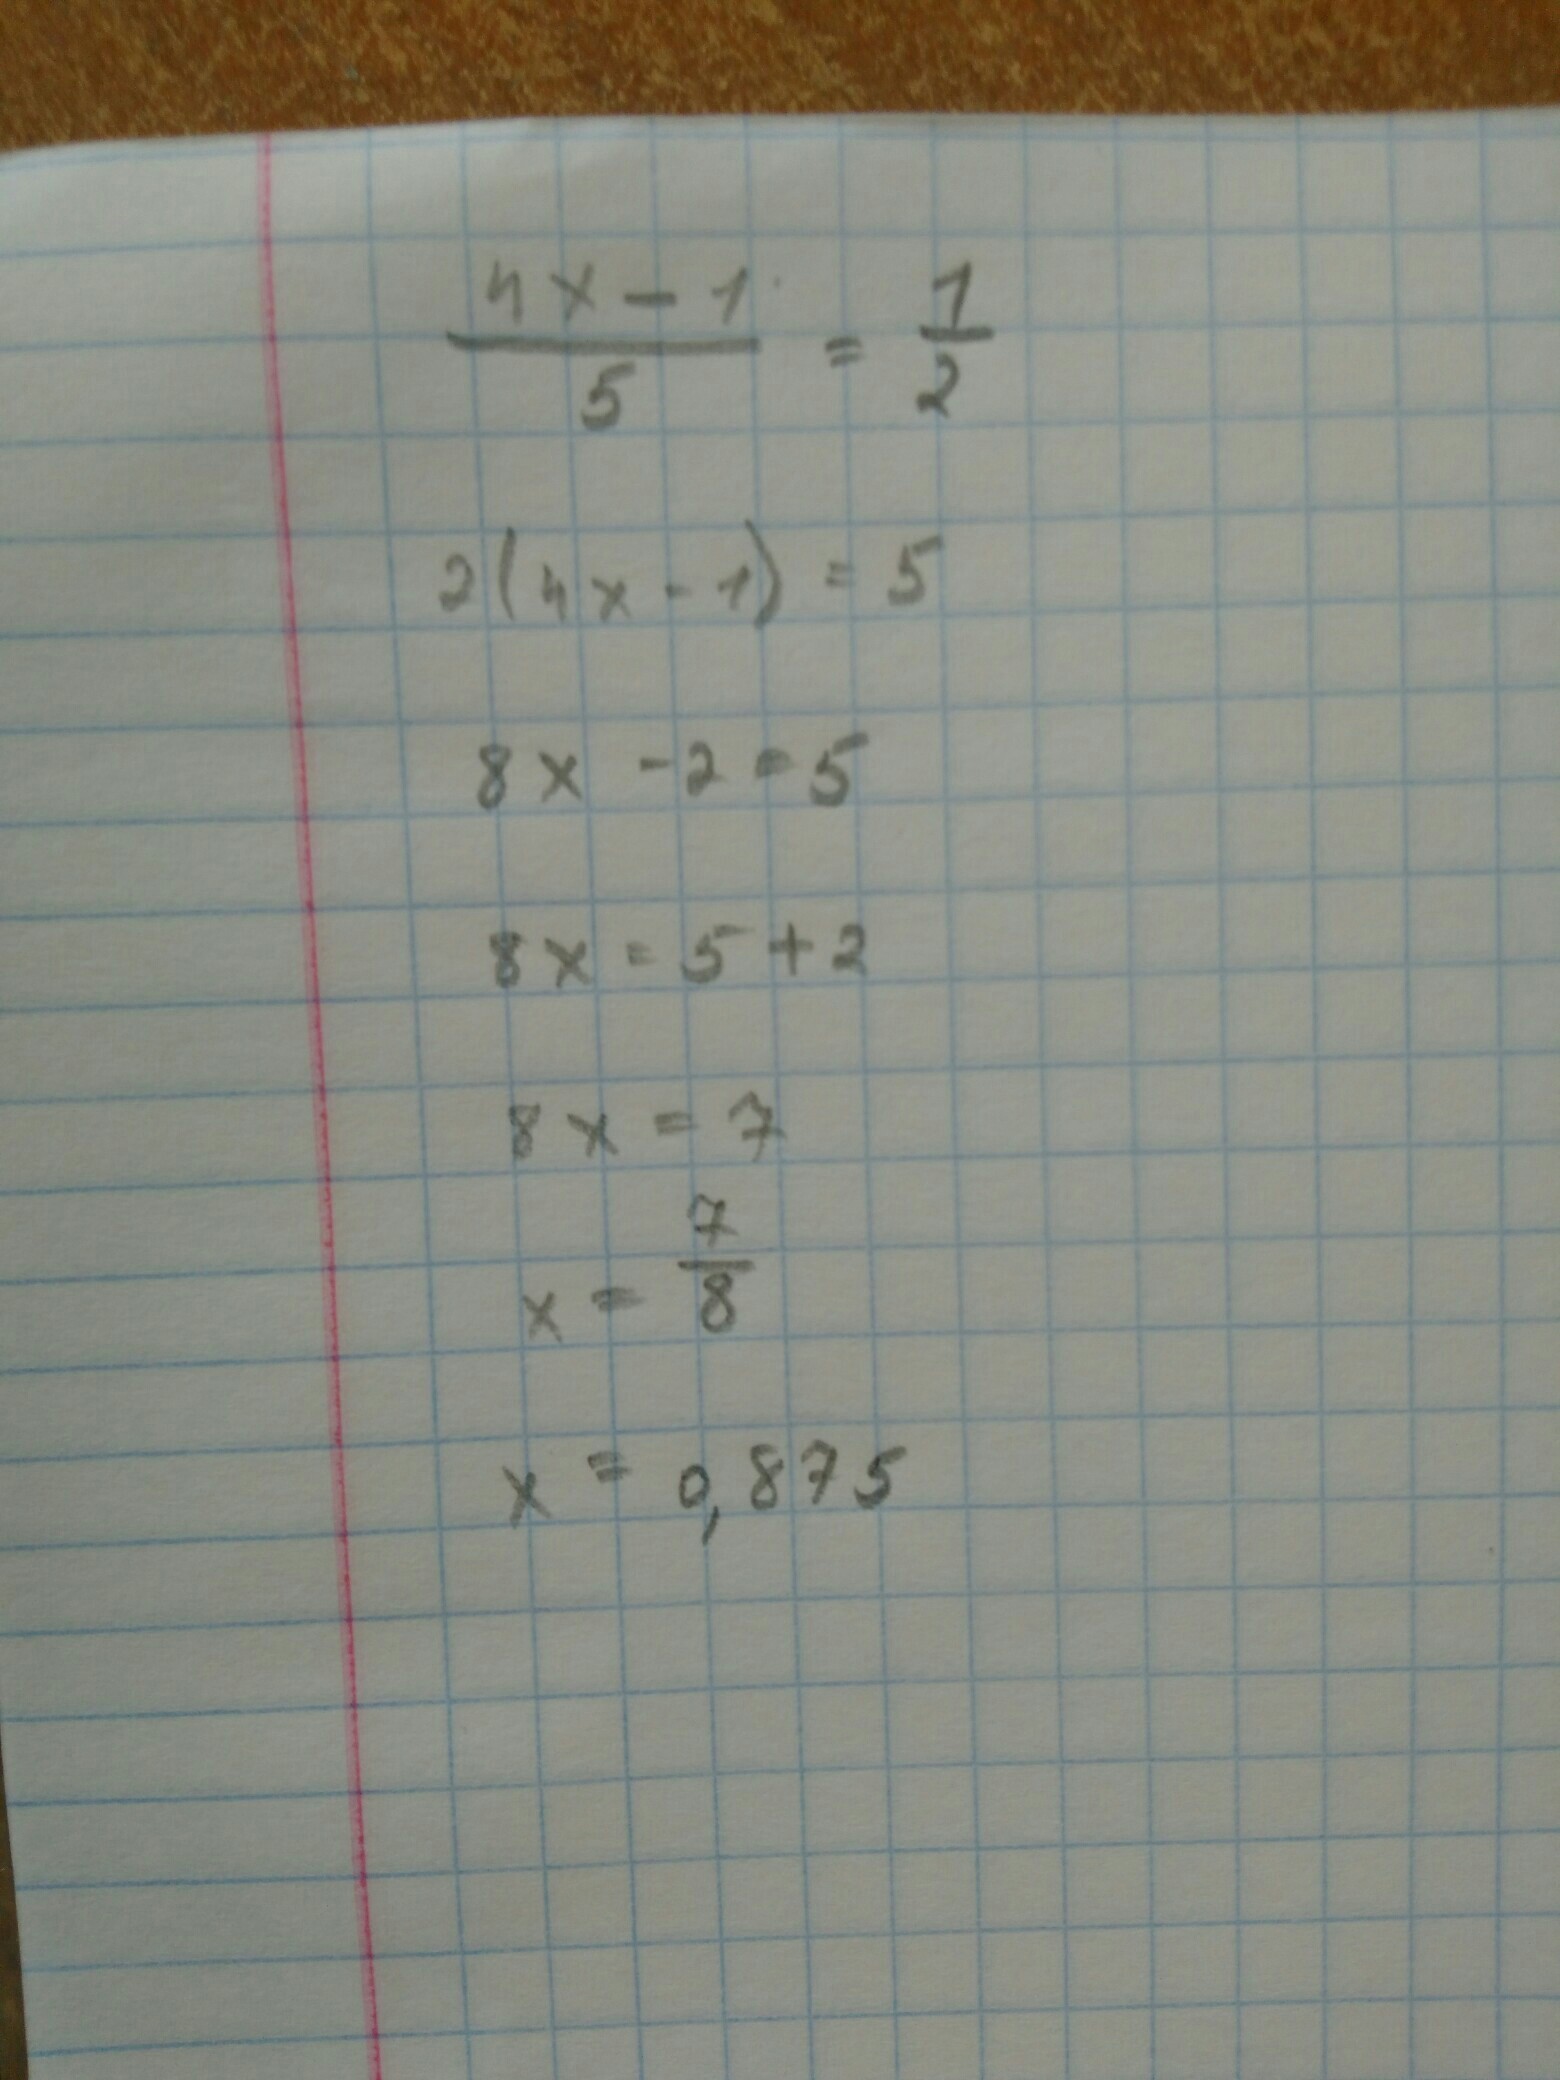 4x - 1 / 5 = 1 / 2
2(4x - 1) = 5
8x - 2 = 5
8x = 5 + 2
8x = 7
x = 7 / 8
x = 0,875